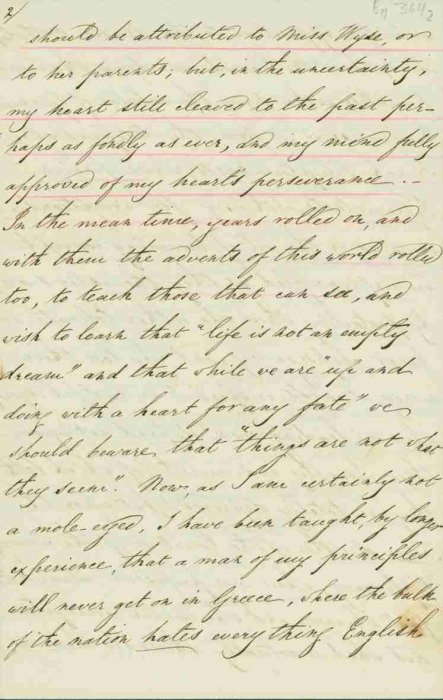 2/
En 364/2
should be attributed to Miss Wyse, or
to her parents; but, in the uncertainty,
my heart still cleaved to the past per-
haps as fondly as ever, and my mind fully
approved of my heart's perseverance. –
In the mean time, years rolled on, and
with them the advents of this world rolled
too, to teach those that can see, and
wish to learn that "life is not an empty
dream" and that while we are "up and
doing with a heart for any fate" we
should beware, that "things are not what
they seem". Now, as I am certainly not
a mole-eyed, I have been taught, by longer
experience, that a man of my principles
will never get on in Greece, where the bulk
of the nation hates every thing English